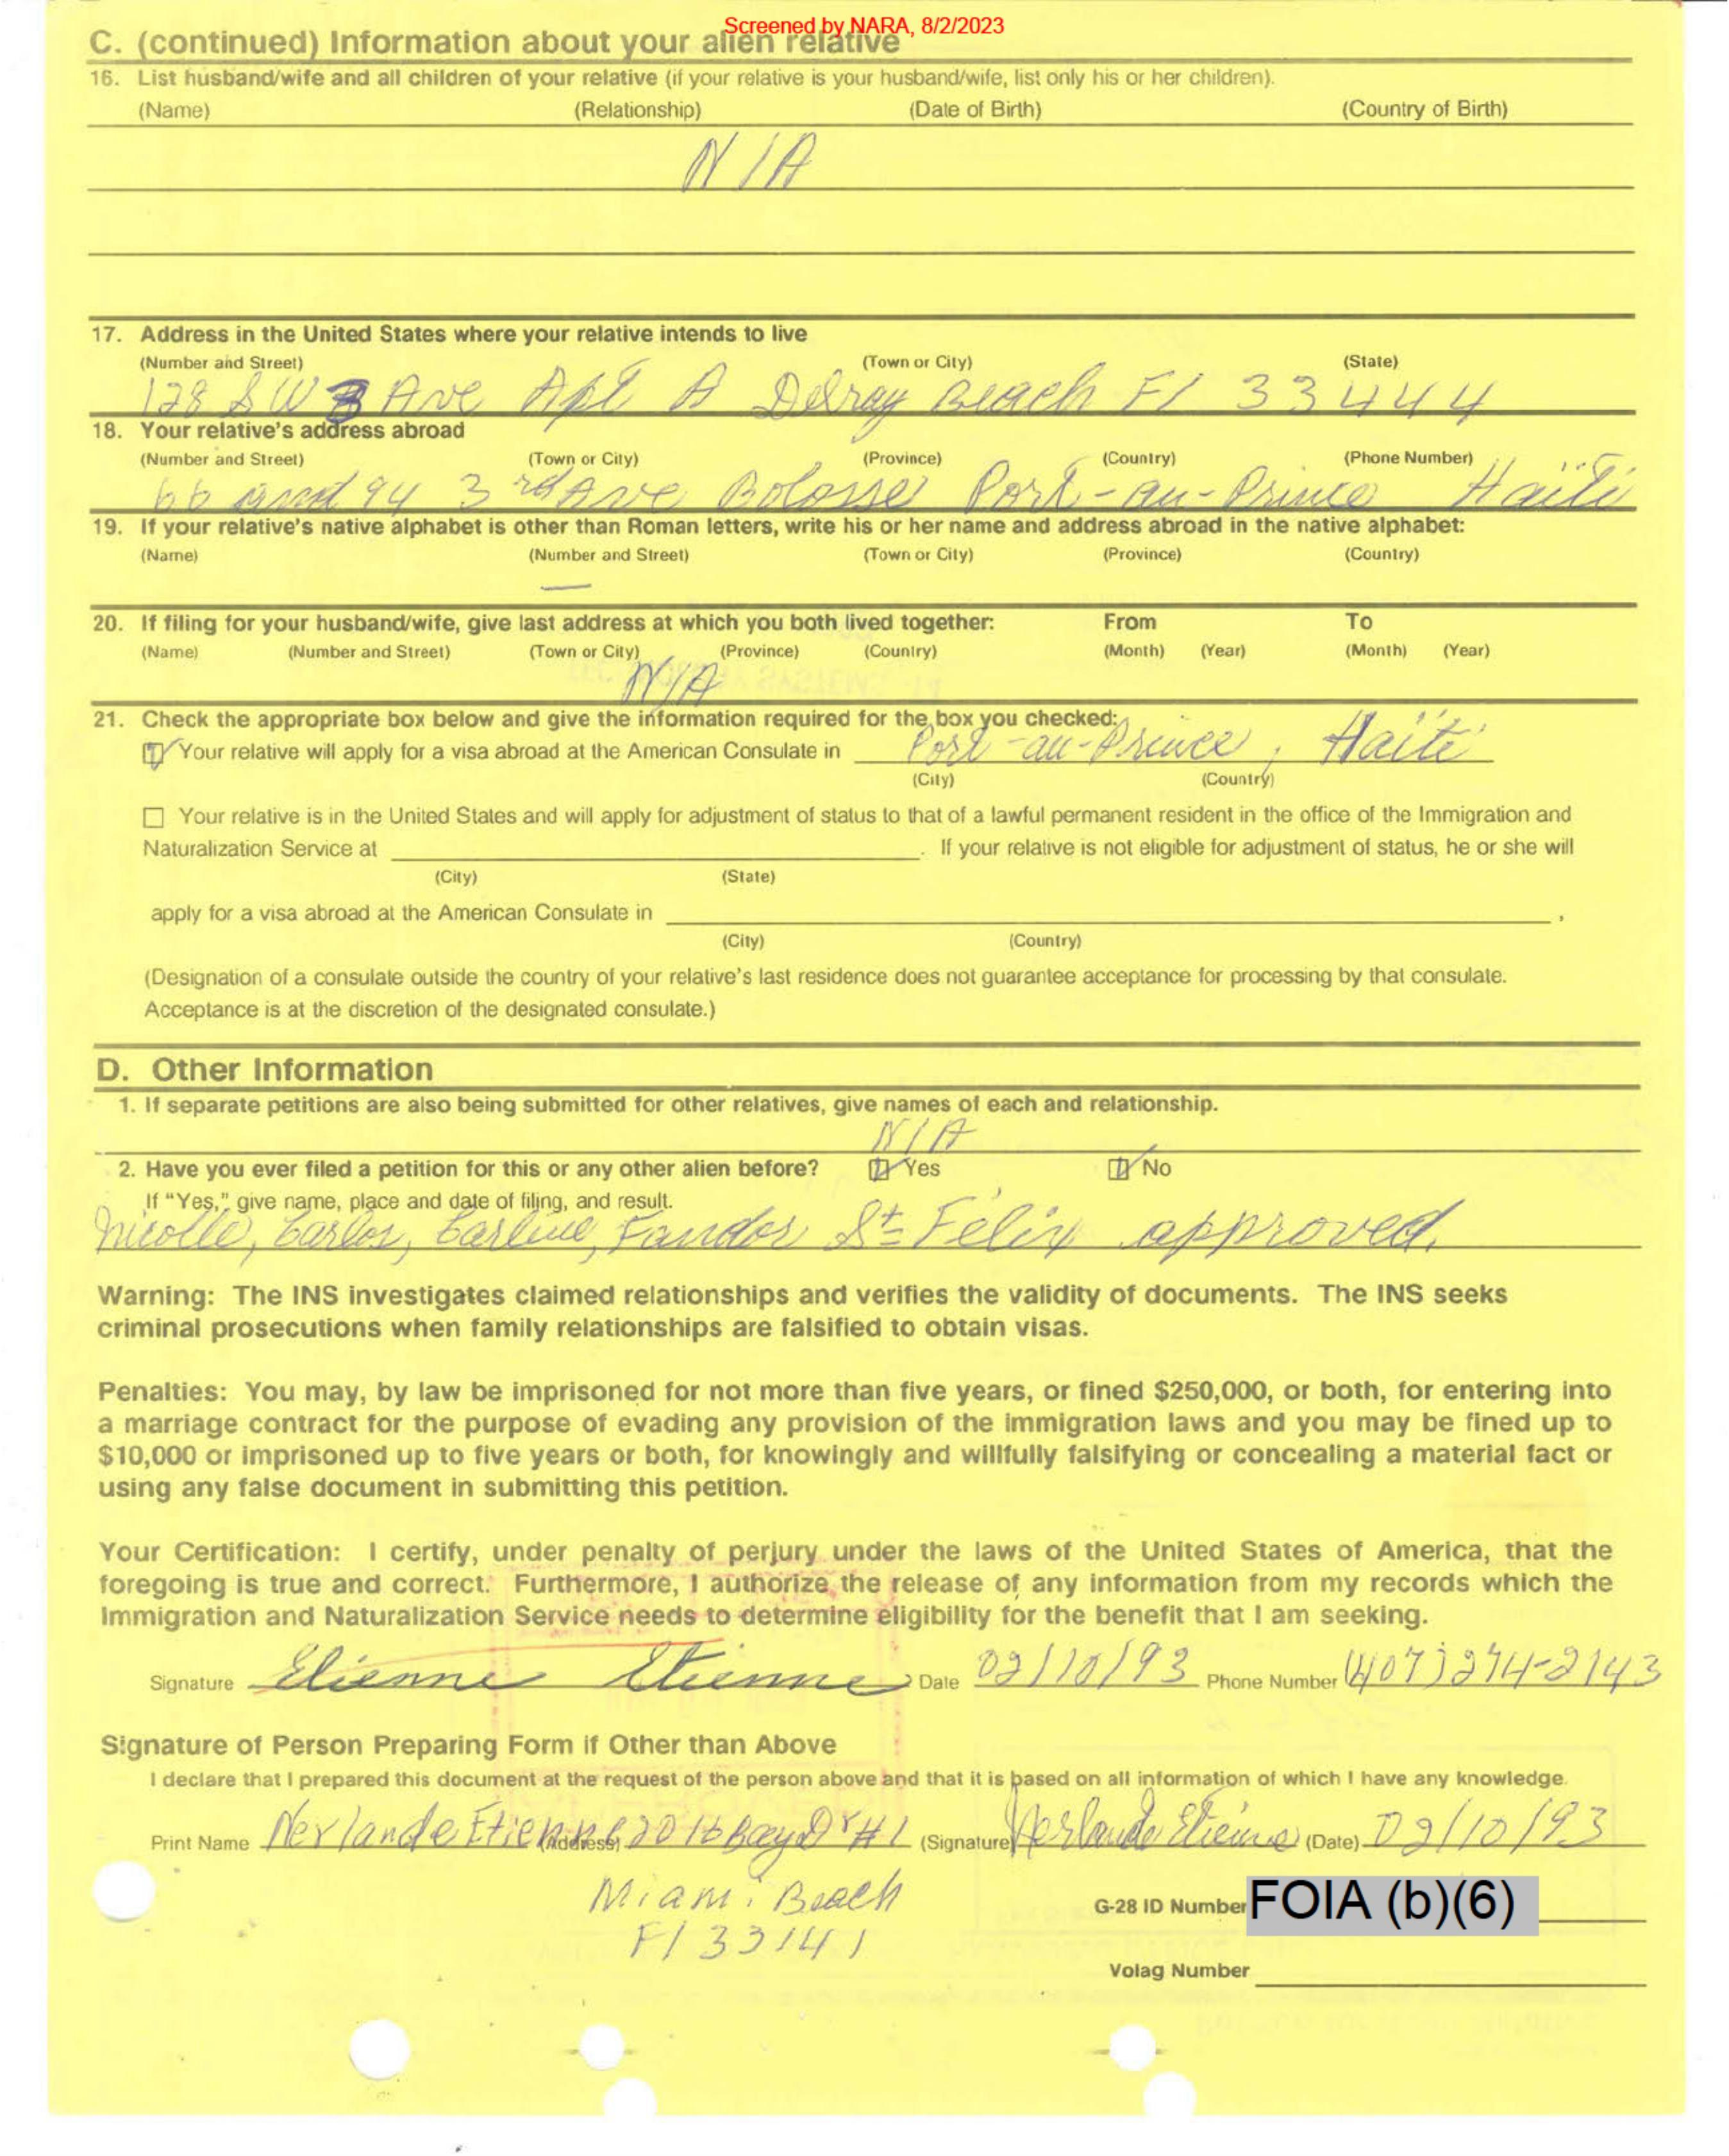 Screened by NARA, 8/2/2023
C. (continued) Information about your alien relative
16. List husband/wife and all children of your relative (if your relative is your husband/wife, list only his or her children).
(Name) (Relationship) (Date of Birth) (Country of Birth)
N/A
17. Address in the United States where your relative intends to live
(Number and Street) (Town or City) (State)
128 SW 3 Ave Apt A Delray Beach Fl 33444
18. Your relative's address abroad
(Number and Street) (Town or City) (Province) (Country) (Phone Number)
66 and 94 3rd Ave Bolosse Port-au-Prince Haïti
19. If your relative's native alphabet is other than Roman letters, write his or her name and address abroad in the native alphabet:
(Name) (Number and Street) (Town or City) (Province) (Country)
—
20. If filing for your husband/wife, give last address at which you both lived together: From To
(Name) (Number and Street) (Town or City) (Province) (Country) (Month) (Year) (Month) (Year)
N/A
21. Check the appropriate box below and give the information required for the box you checked:
Your relative will apply for a visa abroad at the American Consulate in Port-au-Prince, Haïti
(City) (Country)
Your relative is in the United States and will apply for adjustment of status to that of a lawful permanent resident in the office of the Immigration and
Naturalization Service at . If your relative is not eligible for adjustment of status, he or she will
(City) (State)
apply for a visa abroad at the American Consulate in ,
(City) (Country)
(Designation of a consulate outside the country of your relative's last residence does not guarantee acceptance for processing by that consulate.
Acceptance is at the discretion of the designated consulate.)
D. Other Information
1. If separate petitions are also being submitted for other relatives, give names of each and relationship.
N/A
2. Have you ever filed a petition for this or any other alien before? Yes No
If "Yes," give name, place and date of filing, and result.
Nicolle, Carlos, Carline, Fandor St Félix approved.
Warning: The INS investigates claimed relationships and verifies the validity of documents. The INS seeks
criminal prosecutions when family relationships are falsified to obtain visas.
Penalties: You may, by law be imprisoned for not more than five years, or fined $250,000, or both, for entering into
a marriage contract for the purpose of evading any provision of the immigration laws and you may be fined up to
$10,000 or imprisoned up to five years or both, for knowingly and willfully falsifying or concealing a material fact or
using any false document in submitting this petition.
Your Certification: I certify, under penalty of perjury under the laws of the United States of America, that the
foregoing is true and correct. Furthermore, I authorize the release of any information from my records which the
Immigration and Naturalization Service needs to determine eligibility for the benefit that I am seeking.
Signature Etienne Etienne Date 02/10/93 Phone Number (407) 274-2143
Signature of Person Preparing Form if Other than Above
I declare that I prepared this document at the request of the person above and that it is based on all information of which I have any knowledge.
Print Name Nerlande Etienne (Address) 2016 Bay Dr #1 (Signature) Nerlande Etienne (Date) 02/10/93
Miami Beach
Fl 33141
G-28 ID Number FOIA (b)(6)
Volag Number